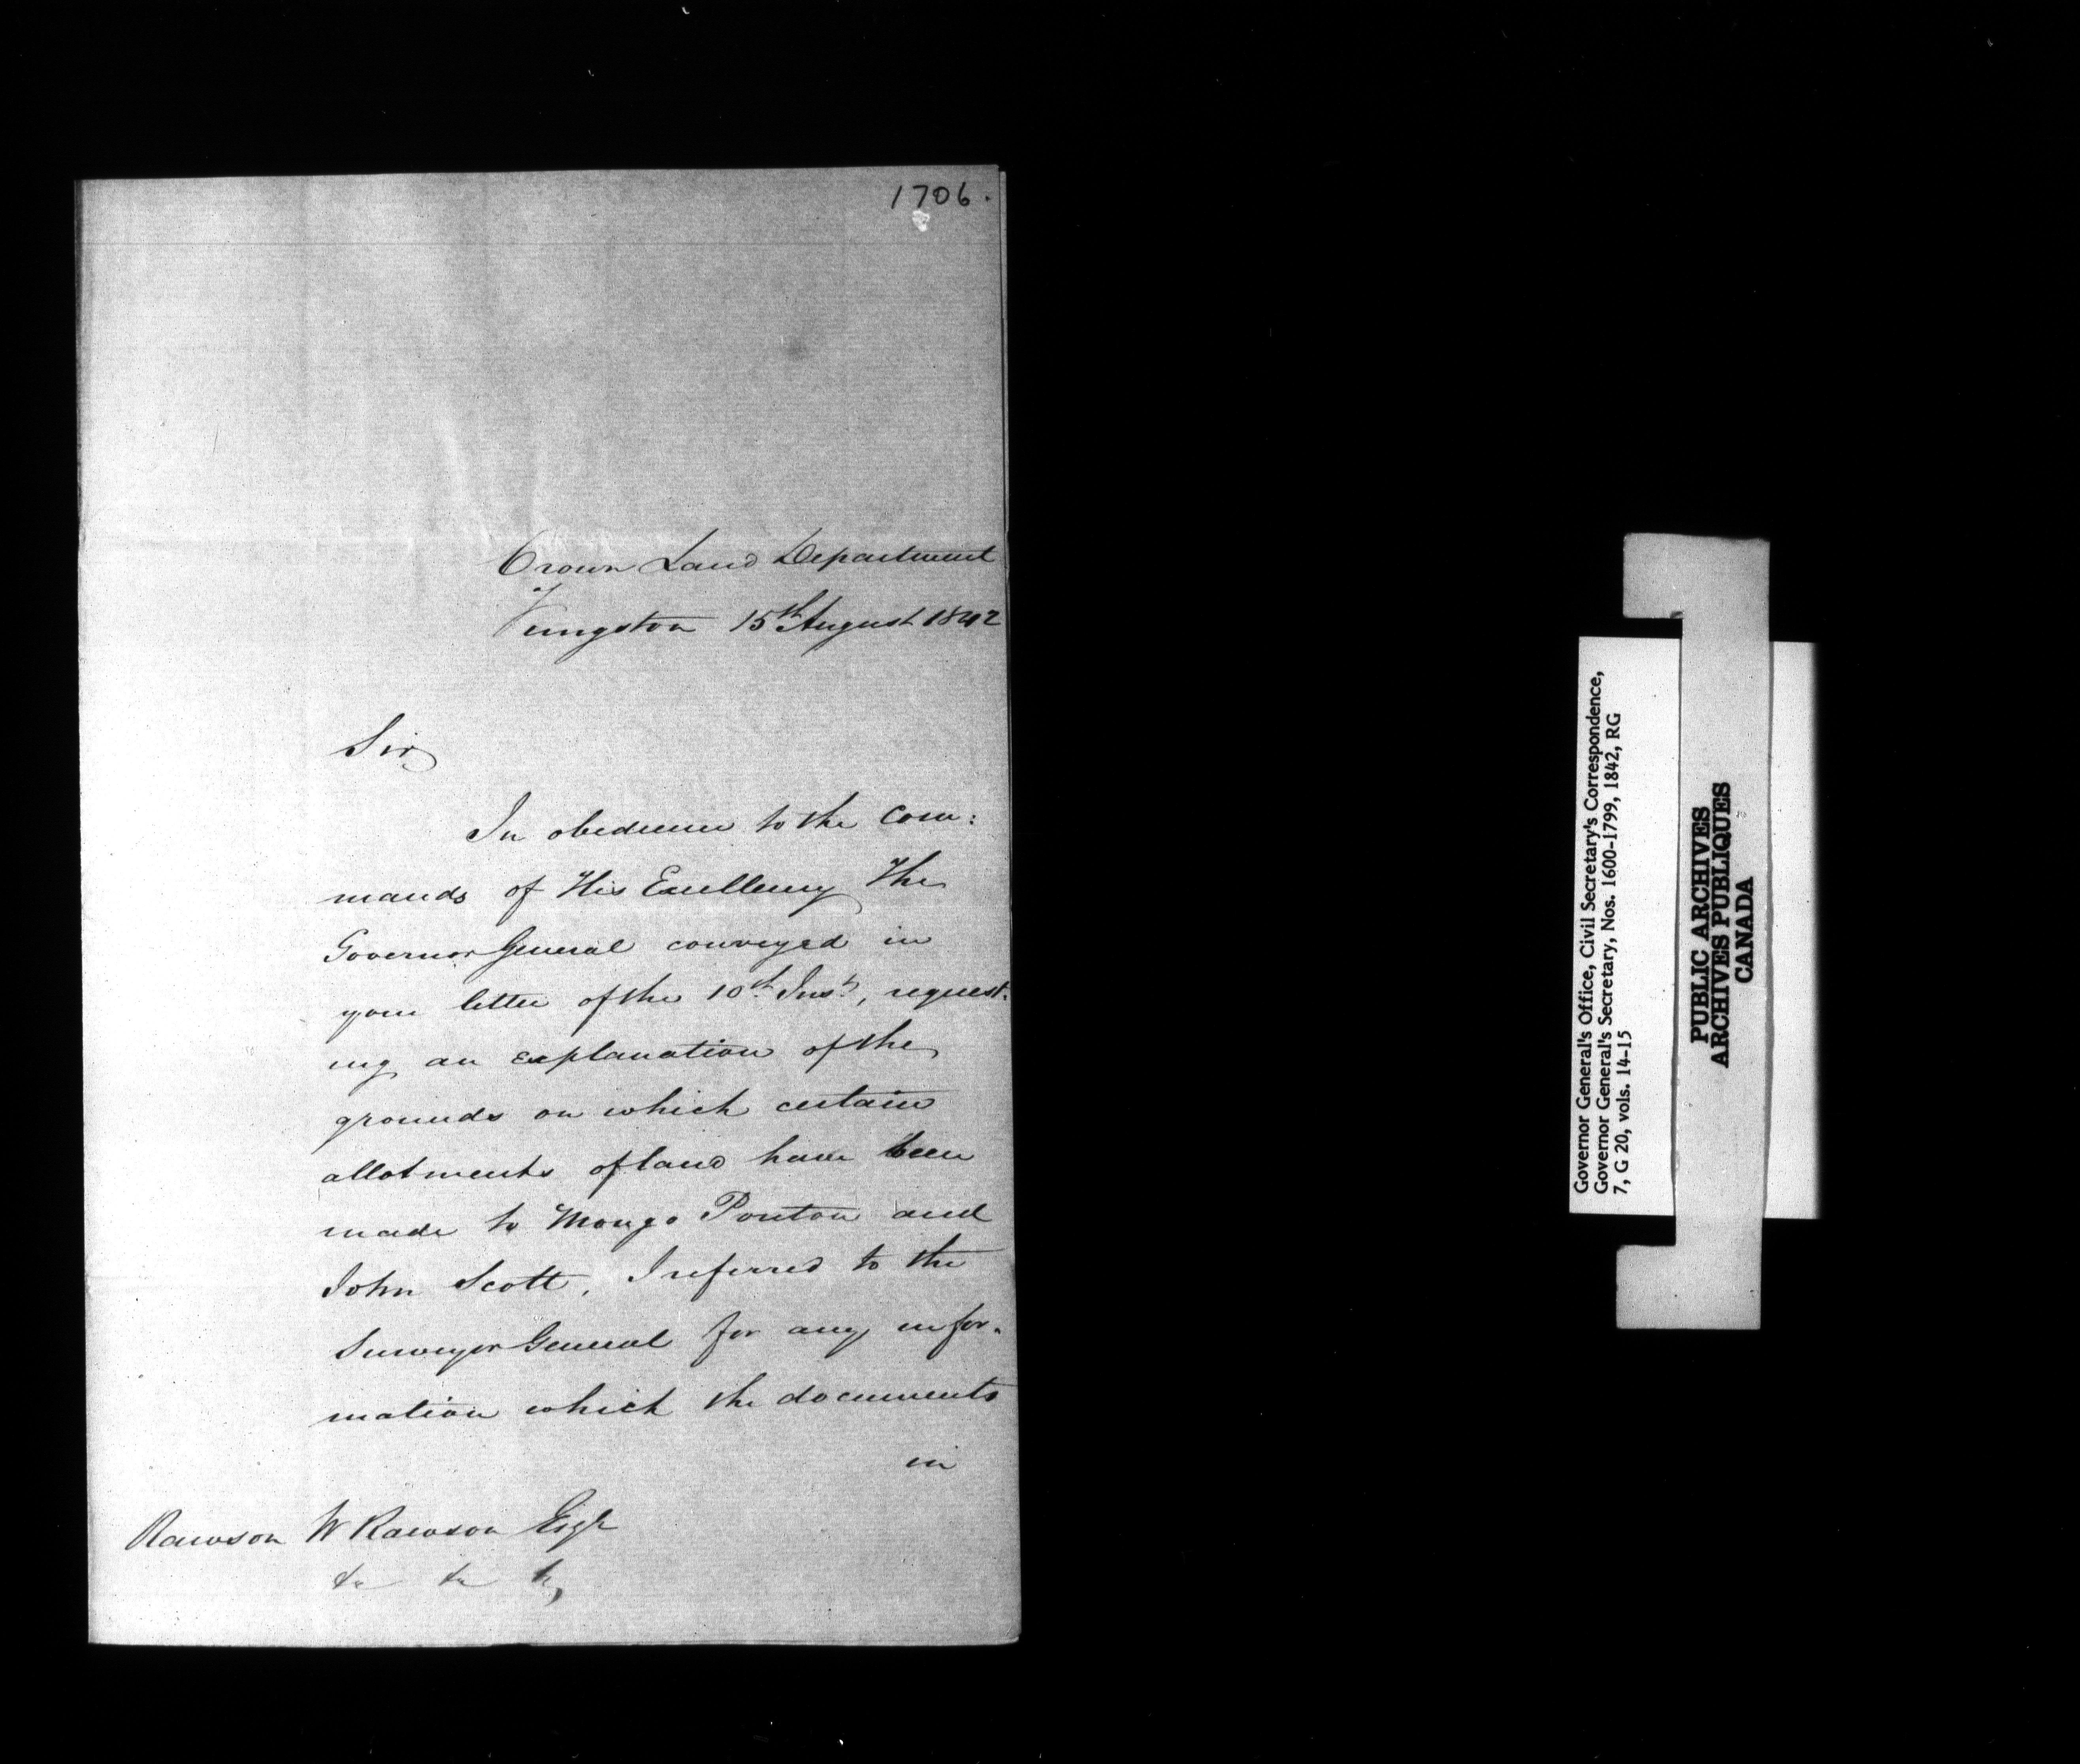 1706.
Crown Land Department
Kingston 15th August 1842
Sir
In obedience to the Com:
mands of His Excellency The
Governor General conveyed in
your letter of the 10th Inst, request:
ing an explanation of the
grounds on which certain
allotments of land have been
made to Mongo Ponton and
John Scott, I referred to the
Surveyor General for any infor-
mation which the documents
in
Rawson W Rawson Esqr
&c &c &c,
Governor General's Office, Civil Secretary's Correspondence,
Governor General's Secretary, Nos. 1600-1799, 1842, RG
7, G 20, vols. 14-15
PUBLIC ARCHIVES
ARCHIVES PUBLIQUES
CANADA